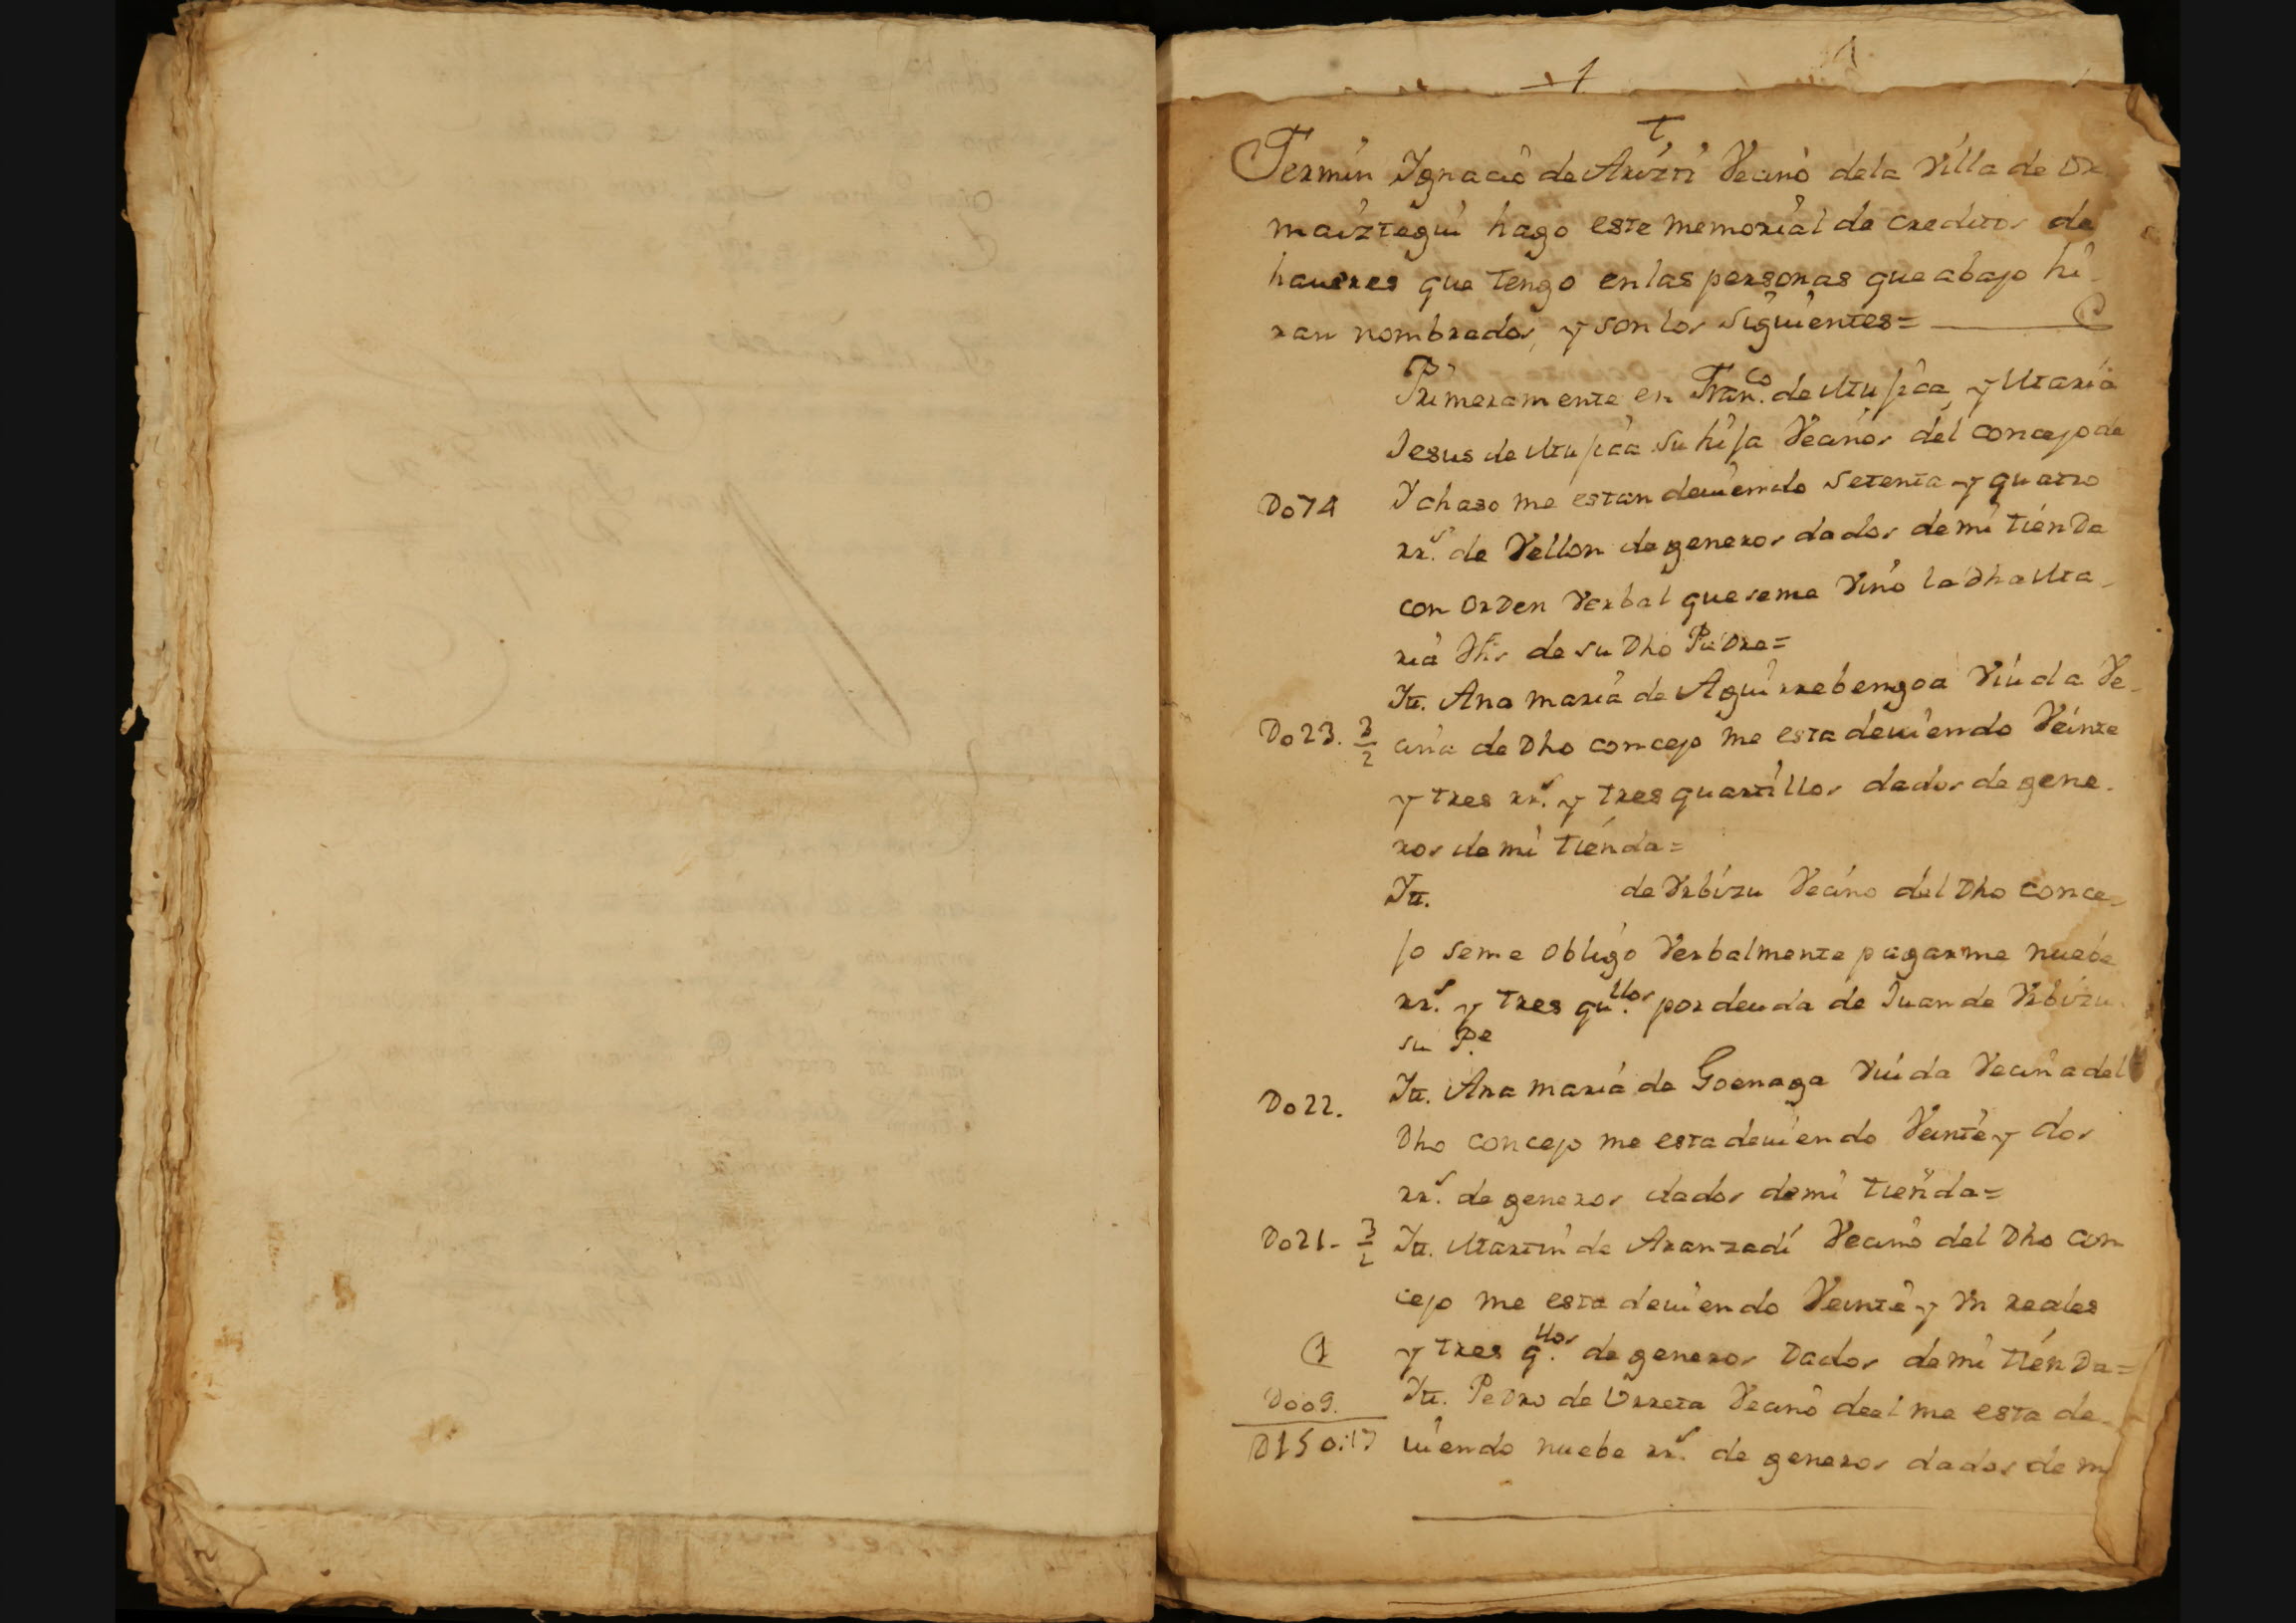 1
t
Fermin Ygnacio de Arizti Vecino dela Villa de Or
maiztegui hago este memorial de creditos de
haueres que tengo en las personas que abajo hi-
ran nombrados, y son los siguientes=
Primeramente en Fran.co de Mujica, y Maria
Jesus de Mujica su hija Vecinos del concejo de
Do74 Ychaso me estan deuiendo setenta y quatro
rr.s de Vellon de generos dados de mi tienda
con orden Verbal que seme Vino la dha Ma-
ria de su Dho Padre=
Itt. Ana maria de Aguirrebengoa Viuda Ve-
Do23. 3/2 cina de Dho concejo me esta deuiendo Veinte
y tres rr.s y tres quartillos dados de gene-
ros de mi tienda=
Itt. de Vrbizu Vecino del Dho conce-
jo seme obligo Verbalmente pagarme nuebe
rr.s y tres qu.llos por deuda de Juan de Vrbizu
su P.e
Itt. Ana maria de Goenaga Viuda Vecina del
Do22. Dho concejo me esta deuiendo Veinte y dos
rr.s de generos dados demi tienda=
Do21- 3/2 Itt. Martin de Aranzadi Vecino del Dho con
cejo me esta deuiendo Veinte y Vn reales
1 y tres q.llos de generos Dados de mi tienda=
Doo9. Itt. Pedro de Urreta Vecino deel me esta de-
D150:17 uiendo nuebe rr.s de generos dados de m